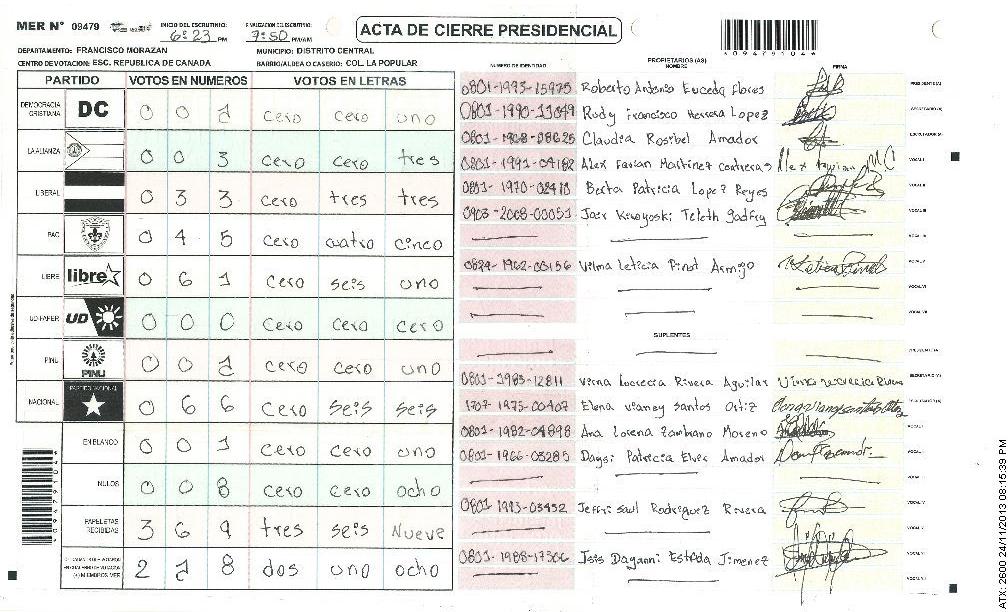 MER N° 09479 INICIO DEL ESCRUTINIO: 6:23 PM FINALIZACION DEL ESCRUTINIO: 7:50 PM/AM ACTA DE CIERRE PRESIDENCIAL
DEPARTAMENTO: FRANCISCO MORAZAN MUNICIPIO: DISTRITO CENTRAL
CENTRO DE VOTACION: ESC. REPUBLICA DE CANADA BARRIO/ALDEA O CASERIO: COL. LA POPULAR
PARTIDO VOTOS EN NUMEROS VOTOS EN LETRAS
DEMOCRACIA CRISTIANA DC 0 0 1 cero cero uno
LA ALIANZA 0 0 3 cero cero tres
LIBERAL 0 3 3 cero tres tres
PAC 0 4 5 cero cuatro cinco
LIBRE libre 0 6 1 cero seis uno
UD-FAPER UD 0 0 0 cero cero cero
PINU PINU 0 0 1 cero cero uno
NACIONAL PARTIDO NACIONAL 0 6 6 cero seis seis
EN BLANCO 0 0 1 cero cero uno
NULOS 0 0 8 cero cero ocho
PAPELETAS RECIBIDAS 3 6 9 tres seis Nueve
2 1 8 dos uno ocho
NUMERO DE IDENTIDAD PROPIETARIOS (AS) NOMBRE FIRMA
0801-1993-15975 Roberto Antonio Euceda Flores PRESIDENTE(A)
0801-1990-11049 Rudy Francisco Herrera Lopez SECRETARIO(A)
0801-1968-08625 Claudia Rosibel Amador ESCRUTADOR(A)
0801-1991-04182 Alex Farian Martinez contreras VOCAL I
0801-1970-02410 Berta Patricia Lopez Reyes VOCAL II
0903-2008-00051 VOCAL III
VOCAL IV
0824-1962-00156 Vilma Leticia Pinot Armijo VOCAL V
VOCAL VI
VOCAL VII
SUPLENTES
PRESIDENTE(A)
0801-1983-12811 Virna Lucrecia Rivera Aguilar SECRETARIO(A)
1707-1975-00407 Elena Vianey Santos Ortiz ESCRUTADOR(A)
0801-1982-04898 Ana Lorena Zambrano Moreno VOCAL I
0801-1966-03285 Daysi Patricia Amador
0801-1993-03452 Jeffri Saul Rodriguez Rivera VOCAL IV
VOCAL V
0801-1988-17306 Estrada Jimenez VOCAL VI
VOCAL VII
ATX: 2600 24/11/2013 08:15:39 PM